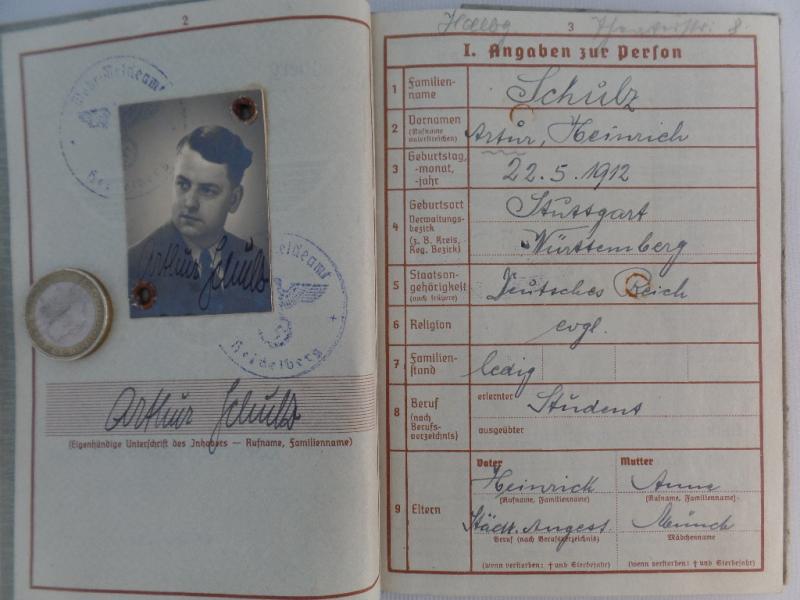 2
Wehr-Meldeamt
Heidelberg
Arthur Schulz
Meldeamt
Heidelberg
Arthur Schulz
(Eigenhändige Unterschrift des Inhabers — Rufname, Familienname)
3
8
I. Angaben zur Person
1 Familien-
name
Schulz
2 Vornamen
(Rufname
unterstreichen)
Artur, Heinrich
3 Geburtstag,
-monat,
-jahr
22.5.1912
4 Geburtsort
Verwaltungs-
bezirk
(z. B. Kreis,
Reg. Bezirk)
Stuttgart
Württemberg
5 Staatsan-
gehörigkeit
(auch frühere)
Deutsches Reich
6 Religion
evgl.
7 Familien-
stand
ledig
8 Beruf
(nach
Berufs-
verzeichnis)
erlernter Student
ausgeübter
9 Eltern
Vater Mutter
Heinrich Anna
(Rufname, Familienname) (Rufname, Familienname)
Städt. Angest. Münch
Beruf (nach Berufsverzeichnis) Mädchenname
(wenn verstorben: † und Sterbejahr) (wenn verstorben: † und Sterbejahr)